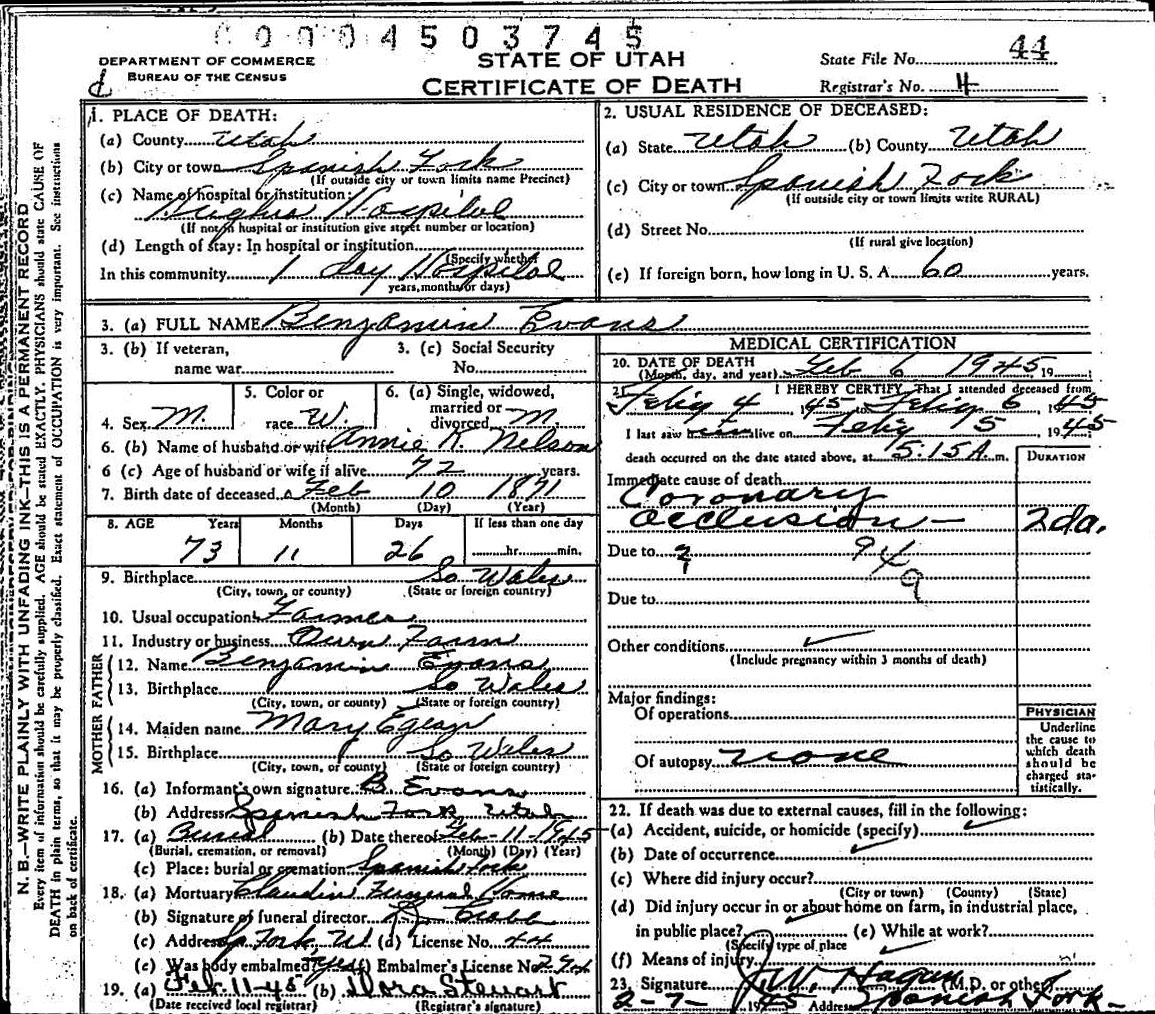 00004503745
DEPARTMENT OF COMMERCE
BUREAU OF THE CENSUS
d
STATE OF UTAH
CERTIFICATE OF DEATH
State File No. 44
Registrar's No. 4
N. B.—WRITE PLAINLY WITH UNFADING INK—THIS IS A PERMANENT RECORD
Every item of information should be carefully supplied. AGE should be stated EXACTLY. PHYSICIANS should state CAUSE OF
DEATH in plain terms, so that it may be properly classified. Exact statement of OCCUPATION is very important. See instructions
on back of certificate.
1. PLACE OF DEATH:
(a) County Utah
(b) City or town Spanish Fork
(If outside city or town limits name Precinct)
(c) Name of hospital or institution:
Hughes Hospital
(If not in hospital or institution give street number or location)
(d) Length of stay: In hospital or institution
(Specify whether
In this community 1 day Hospital
years, months or days)
2. USUAL RESIDENCE OF DECEASED:
(a) State Utah (b) County Utah
(c) City or town Spanish Fork
(If outside city or town limits write RURAL)
(d) Street No.
(If rural give location)
(e) If foreign born, how long in U. S. A. 60 years.
3. (a) FULL NAME Benjamin Evans
3. (b) If veteran,
name war
3. (c) Social Security
No.
4. Sex M.
5. Color or
race W.
6. (a) Single, widowed,
married or
divorced M.
6. (b) Name of husband or wife Annie K. Nelson
6 (c) Age of husband or wife if alive 72 years.
7. Birth date of deceased Feb 10 1871
(Month) (Day) (Year)
8. AGE Years Months Days If less than one day
73 11 26 hr. min.
9. Birthplace So Wales
(City, town, or county) (State or foreign country)
10. Usual occupation Farmer
11. Industry or business Own Farm
FATHER
12. Name Benjamin Evans
13. Birthplace So Wales
(City, town, or county) (State or foreign country)
MOTHER
14. Maiden name Mary Egean
15. Birthplace So Wales
(City, town, or county) (State or foreign country)
16. (a) Informant's own signature B Evans
(b) Address Spanish Fork, Utah
17. (a) Burial (b) Date thereof Feb-11-1945
(Burial, cremation, or removal) (Month) (Day) (Year)
(c) Place: burial or cremation Spanish Fork
18. (a) Mortuary Claudin Funeral Home
(b) Signature of funeral director
(c) Address Sp Fork, U (d) License No. 44
(e) Was body embalmed? yes (f) Embalmer's License No.
19. (a) Feb 11-45 (b) Nora Stewart
(Date received local registrar) (Registrar's signature)
MEDICAL CERTIFICATION
20. DATE OF DEATH
(Month, day, and year) Feb 6 1945 19
21. I HEREBY CERTIFY, That I attended deceased from
4 1945 to 6 1945
I last saw him alive on 5 1945
death occurred on the date stated above, at 5:15 A. m.
DURATION
Immediate cause of death
Coronary
occlusion — 2 da.
Due to ? 94a
Due to
Other conditions
(Include pregnancy within 3 months of death)
Major findings:
Of operations
Of autopsy none
PHYSICIAN
Underline
the cause to
which death
should be
charged sta-
tistically.
22. If death was due to external causes, fill in the following:
(a) Accident, suicide, or homicide (specify)
(b) Date of occurrence
(c) Where did injury occur?
(City or town) (County) (State)
(d) Did injury occur in or about home on farm, in industrial place,
in public place? (e) While at work?
(Specify type of place
(f) Means of injury
23. Signature J. W. Hagan (M.D. or other)
2-7- 1945 Address Spanish Fork